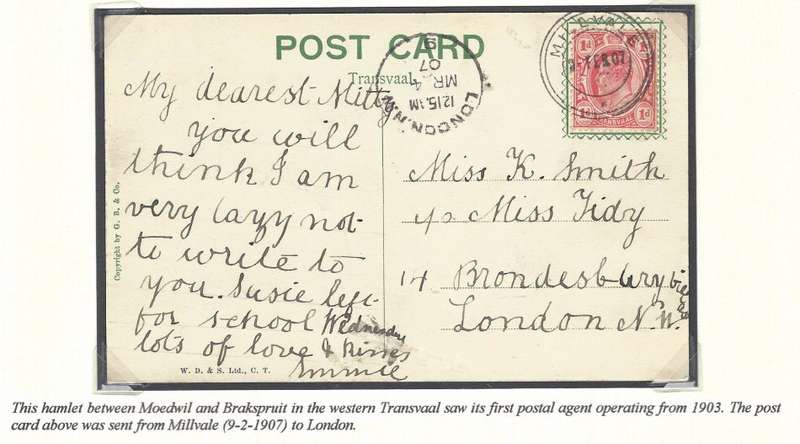 POST CARD
Transvaal
MILLVALE
1d 1d
TRANSVAAL
1d
LONDON.N.W.
12.15 AM
MR 4
07
My dearest Mitty
you will
think I am
very lazy not
to write to
you. Susie left
for school Wednesday
lots of love & kisses
Emmie
Miss K. Smith
c/o Miss Tidy
14 Brondesbury
London N.W.
Copyright by G. B. & Co.
W. D. & S. Ltd., C. T.
This hamlet between Moedwil and Brakspruit in the western Transvaal saw its first postal agent operating from 1903. The post
card above was sent from Millvale (9-2-1907) to London.